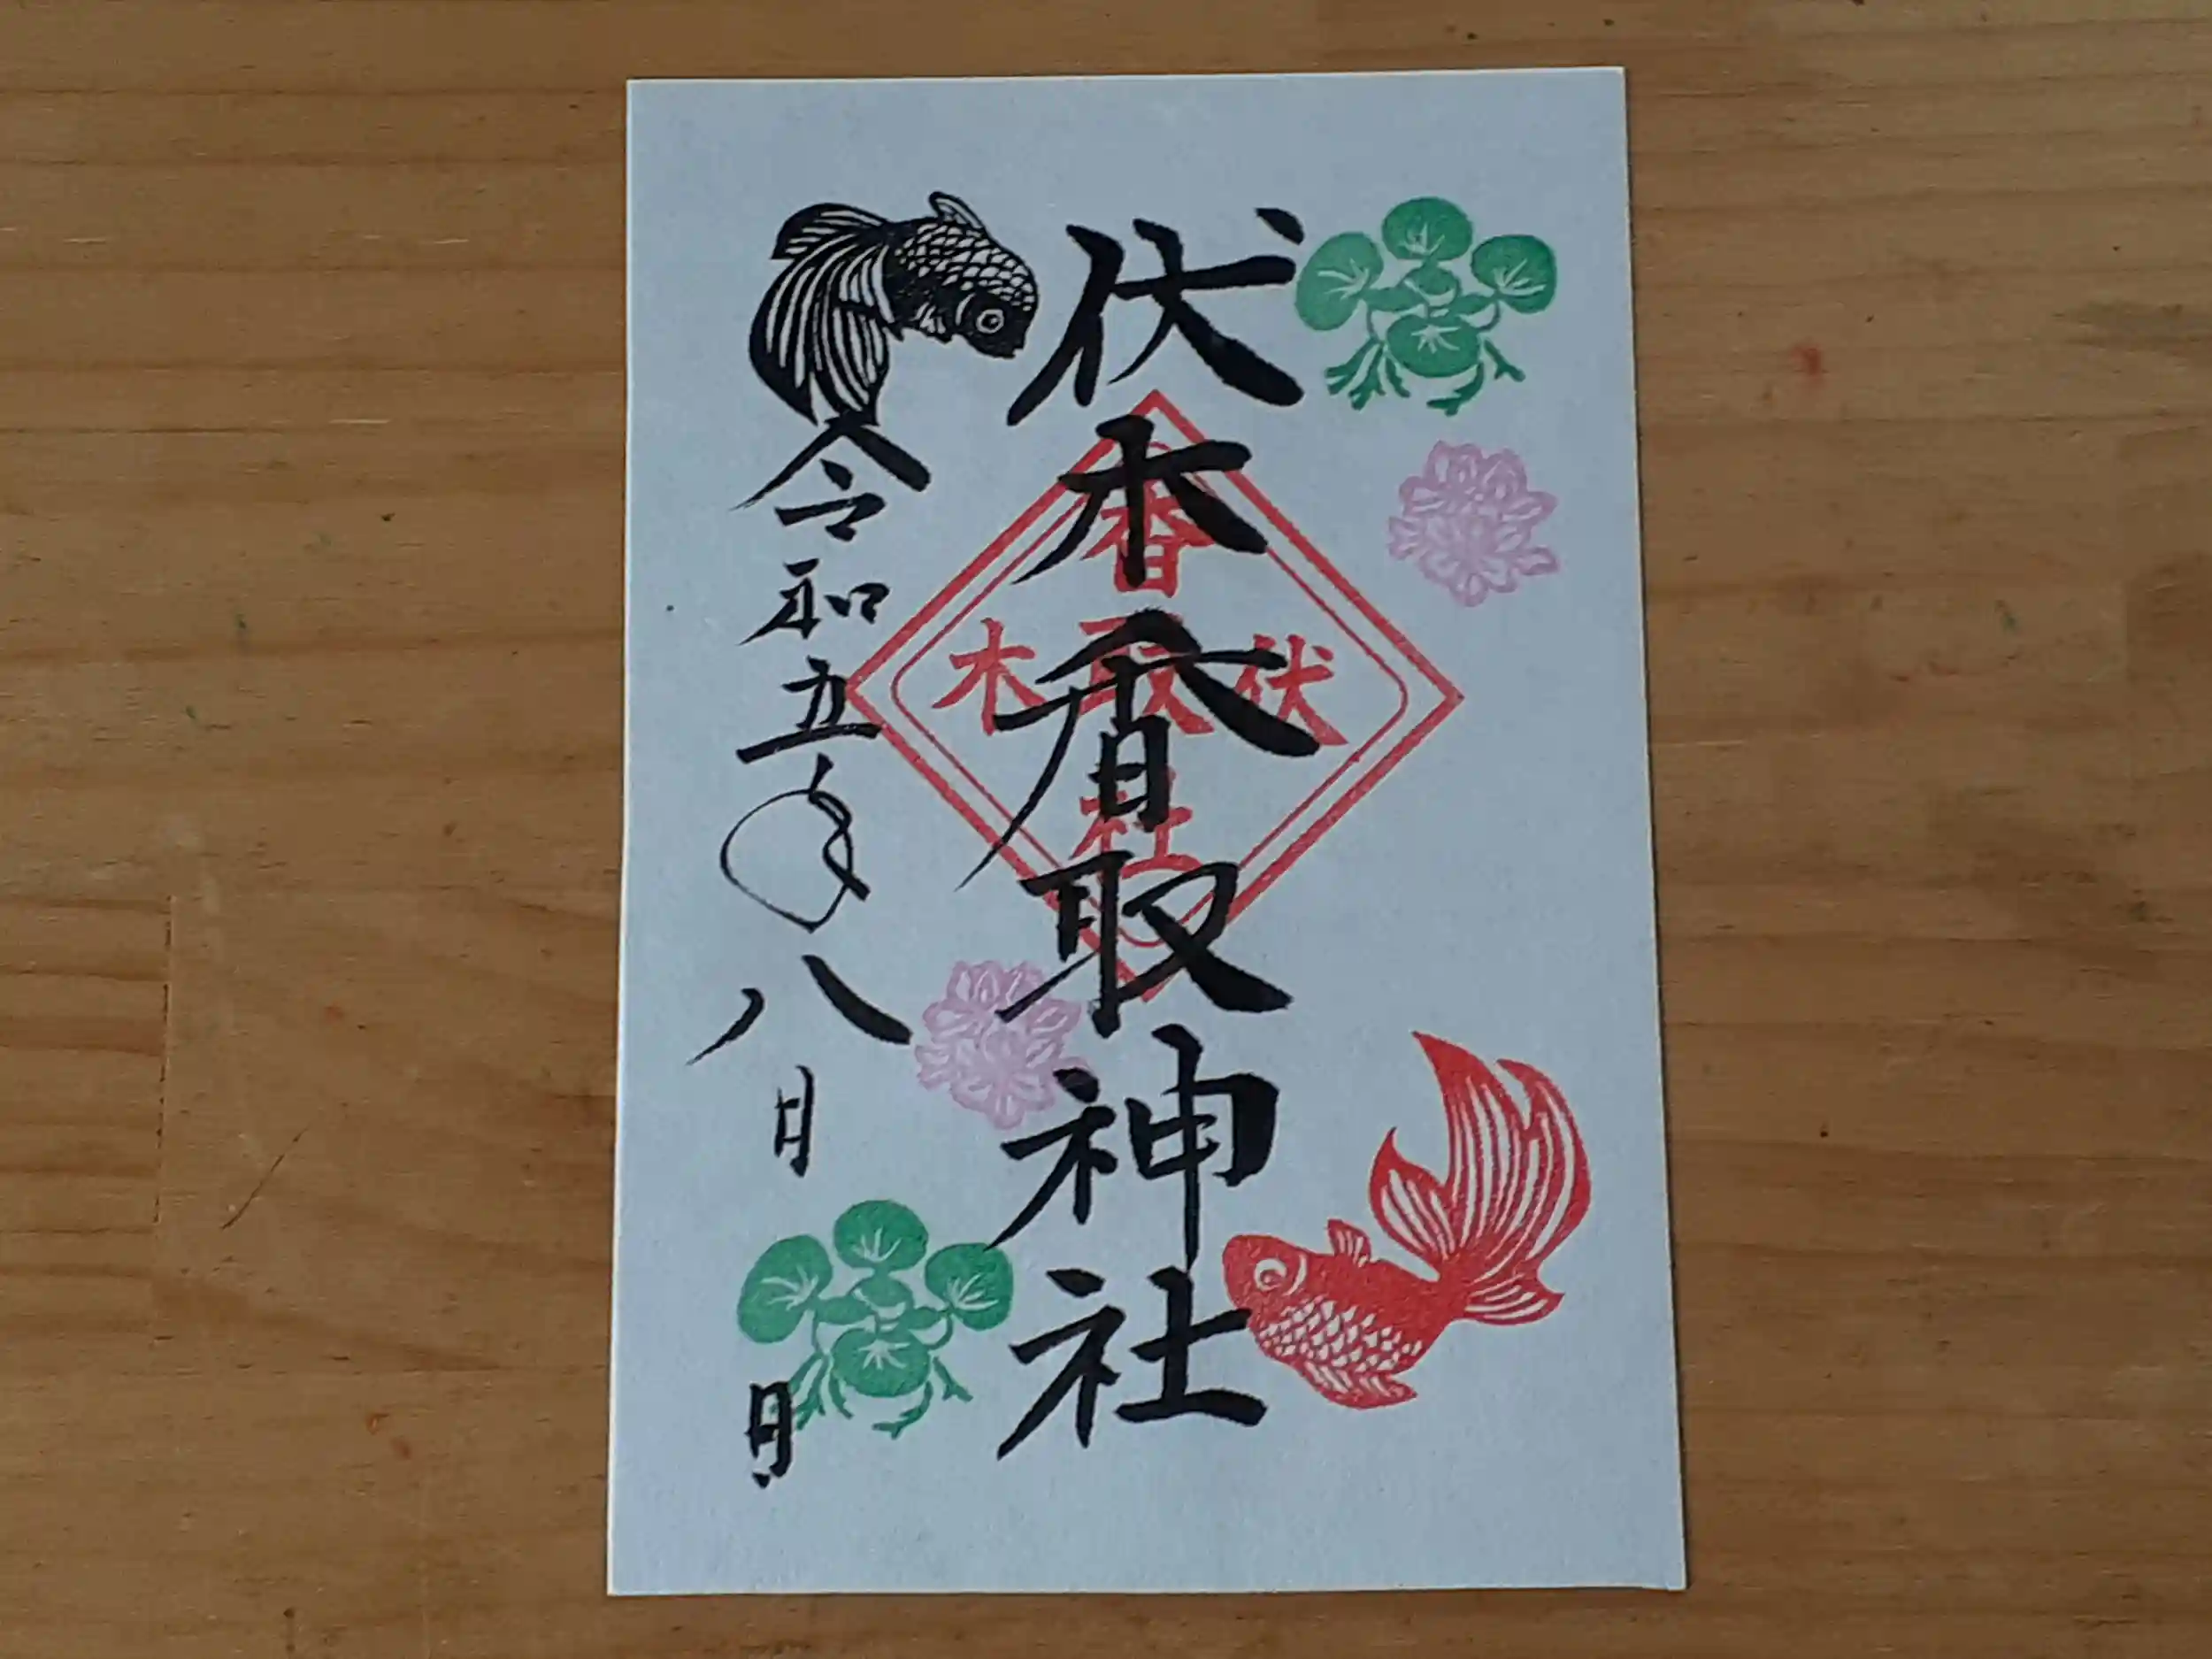 伏木香取神社
香
伏取木
社
令和五年八月 日